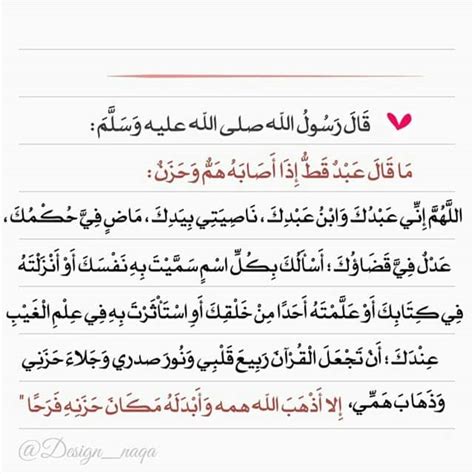 قَالَ رَسُولُ اللّه صلى اللّه عليه وَسَلَّمَ:
مَا قَالَ عَبْدٌ قَطُّ إِذَا أَصَابَهُ هَمٌّ وَحَزَنٌ:
اللَّهُمَّ إِنِّي عَبْدُكَ وَابْنُ عَبْدِكَ، نَاصِيَتِي بِيَدِكَ، مَاضٍ فِيَّ حُكْمُكَ،
عَدْلٌ فِيَّ قَضَاؤُكَ؛ أَسْأَلُكَ بِكُلِّ اسْمٍ سَمَّيْتَ بِهِ نَفْسَكَ أَوْ أَنْزَلْتَهُ
فِي كِتَابِكَ أَوْ عَلَّمْتَهُ أَحَدًا مِنْ خَلْقِكَ أَوِ اسْتَأْثَرْتَ بِهِ فِي عِلْمِ الْغَيْبِ
عِنْدَكَ؛ أَنْ تَجْعَلَ الْقُرْآنَ رَبِيعَ قَلْبِي وَنُورَ صدري وَجَلَاءَ حَزَنِي
وَذَهَابَ هَمِّي، إِلا أَذْهَبَ اللّه همه وَأَبْدَلَهُ مَكَانَ حَزَنِهِ فَرَحًا"
@Design_naqa